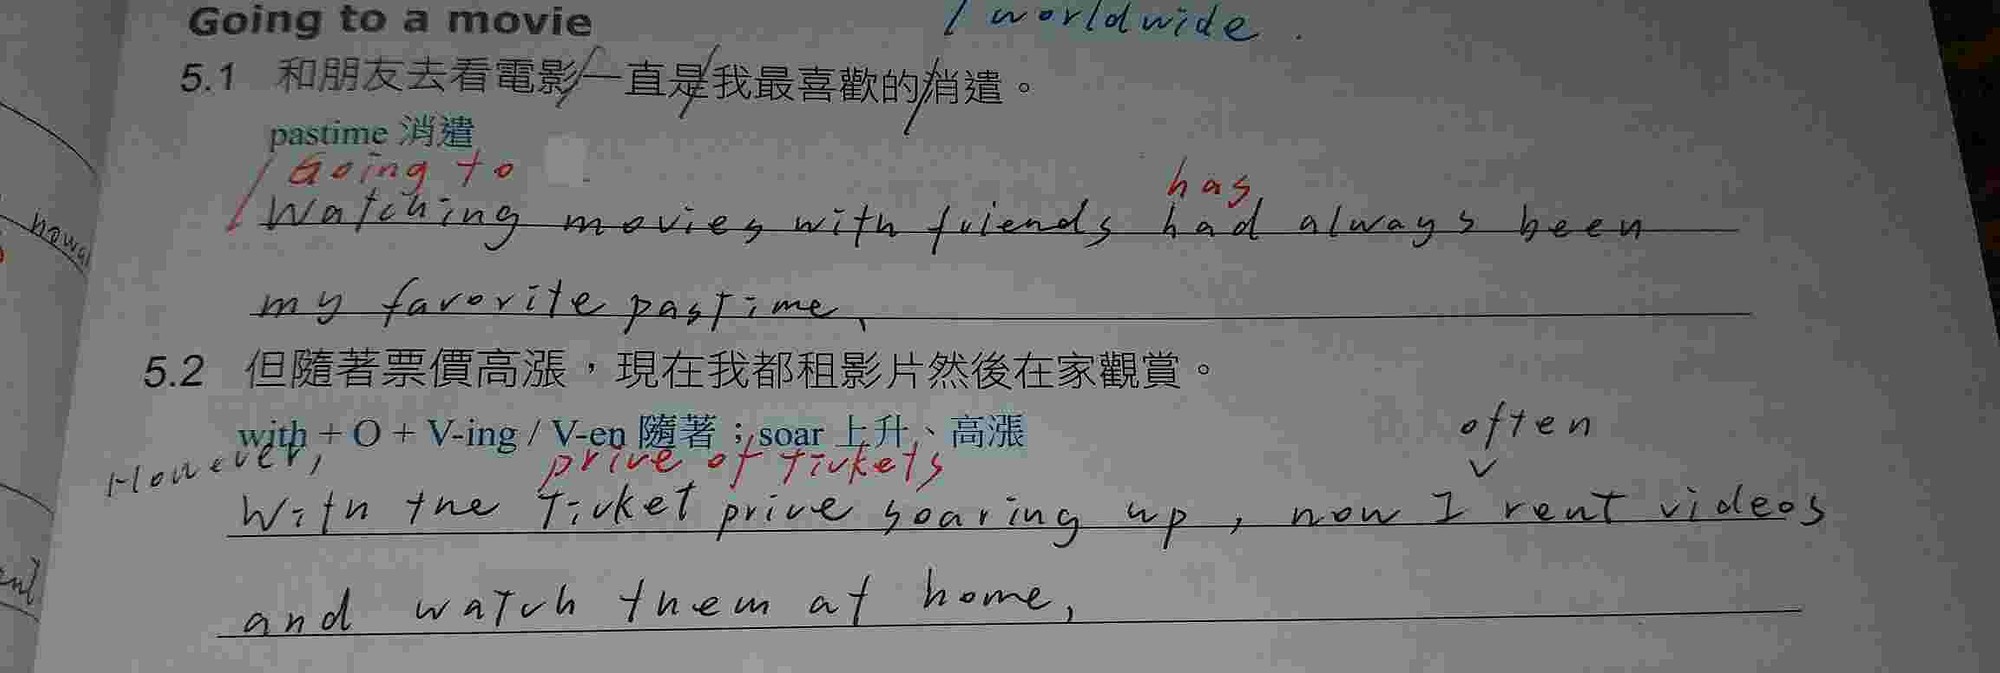 Going to a movie
/ worldwide.
5.1 和朋友去看電影/一直是/我最喜歡的/消遣。
pastime 消遣
Going to has
Watching movies with friends had always been
my favorite pastime.
5.2 但隨著票價高漲，現在我都租影片然後在家觀賞。
often
with + O + V-ing / V-en 隨著；soar 上升、高漲
However, price of tickets
With the ticket price soaring up, now I rent videos
and watch them at home,